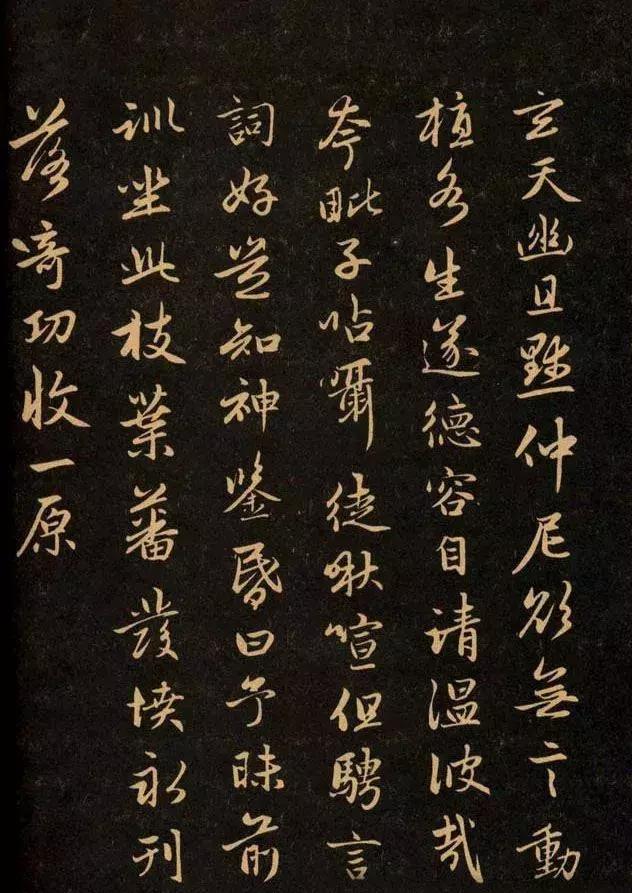 玄天幽且默仲尼欲無言動
植各生遂德容自清温彼哉
夸毗子呫囁徒啾喧但騁言
詞好豈知神鑒昏曰予昧前
訓坐此枝葉蕃發憤永刊
落奇功收一原